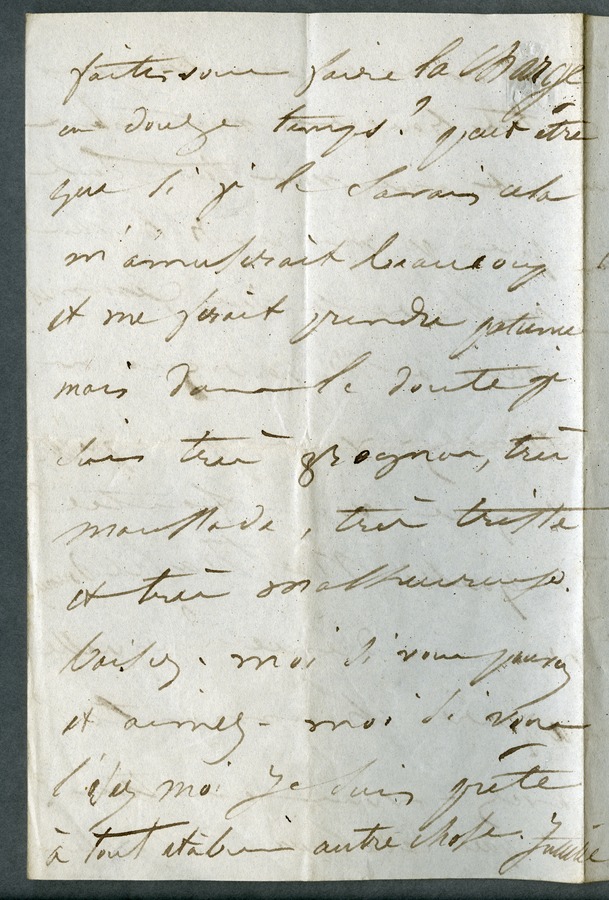 faites vous faire la charge
en douze temps? peut être
que si je le savais cela
m'amuserait beaucoup
et me ferait prendre patience
mais dans le doute je
suis très grognon, très
maussade, très triste
et très malheureuse.
Baisez-moi si vous pouvez
et aimez-moi si vous
l'osez moi je suis prête
à tout et à bien autre chose. Juliette